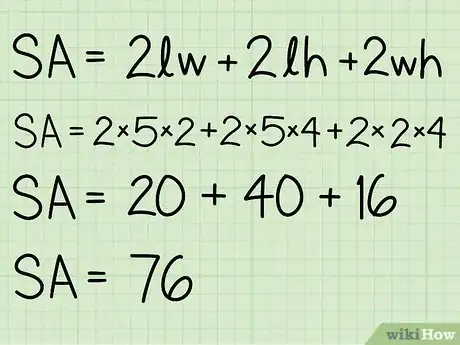 SA = 2lw + 2lh + 2wh
SA = 2×5×2 + 2×5×4 + 2×2×4
SA = 20 + 40 + 16
SA = 76
wikiHow